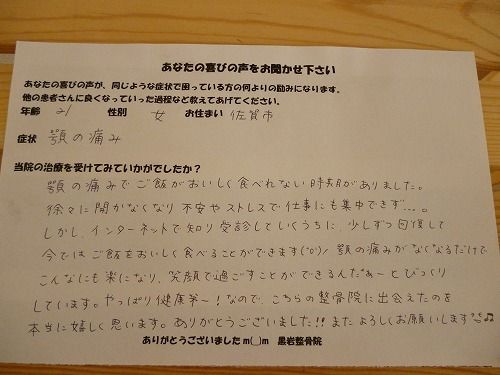 あなたの喜びの声をお聞かせ下さい
あなたの喜びの声が、同じような症状で困っている方の何よりの励みになります。
他の患者さんに良くなっていった過程など教えてあげてください。
年齢 21 性別 女 お住まい 佐賀市
症状 顎の痛み
当院の治療を受けてみていかがでしたか？
顎の痛みでご飯がおいしく食べれない時期がありました。
徐々に開かなくなり不安やストレスで仕事にも集中できず…。
しかし、インターネットで知り受診していくうちに、少しずつ回復して
今ではご飯をおいしく食べることができます(^o^)/ 顎の痛みがなくなるだけで
こんなにも楽になり、笑顔で過ごすことができるんだぁ〜とびっくり
しています。やっぱり健康第一！なので、こちらの整骨院に出会えたのを
本当に嬉しく思います。ありがとうございました!! またよろしくお願いします♫
ありがとうございましたm(__)m 黒岩整骨院